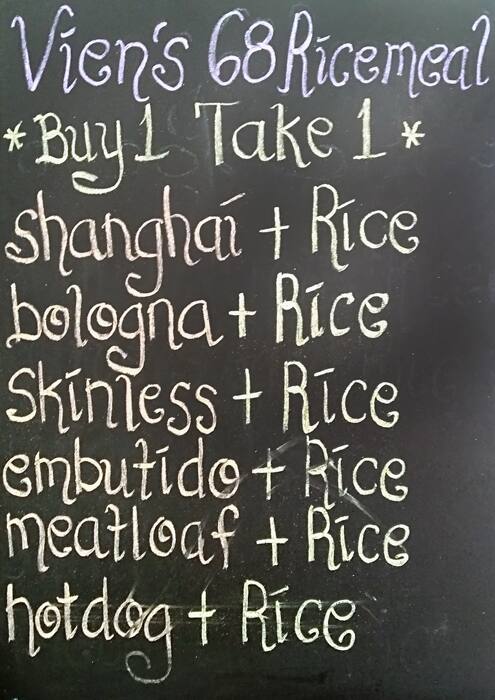 Vien's 68 Ricemeal
*Buy 1 Take 1*
shanghai + Rice
bologna + Rice
Skinless + Rice
embutido + Rice
meatloaf + Rice
hotdog + Rice